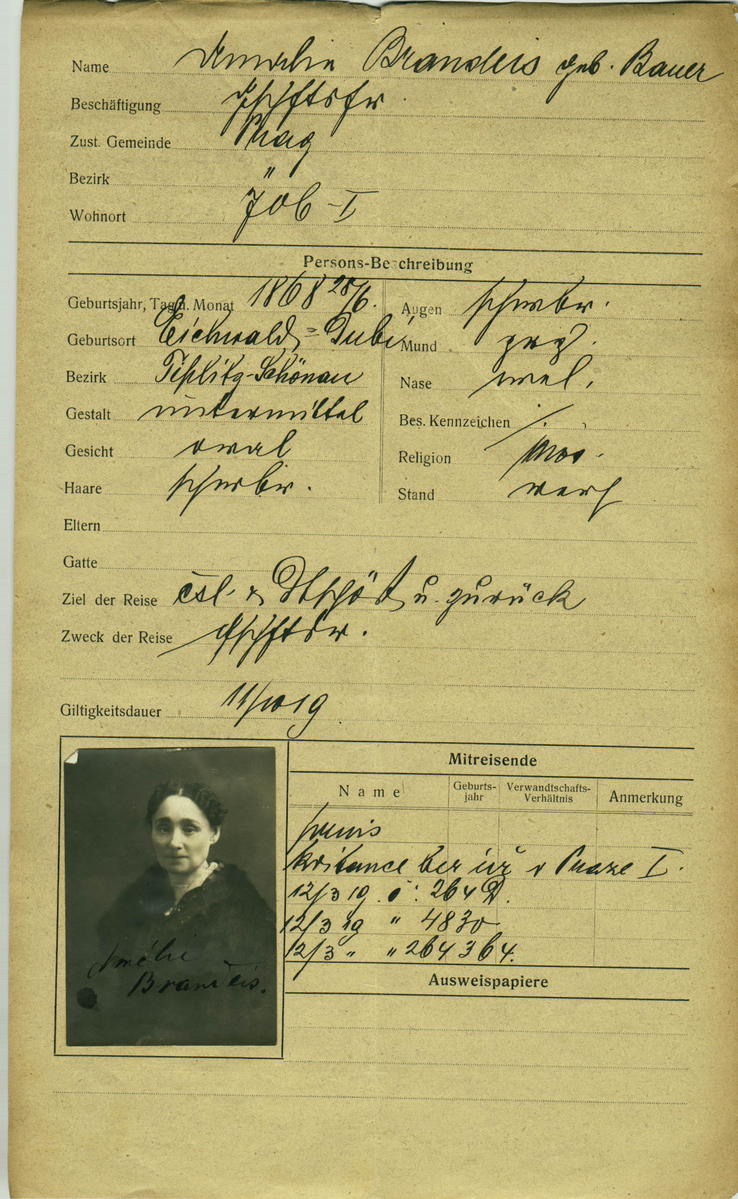 Name Amalie Brandeis geb. Bauer
Beschäftigung Gschftsfr
Zust. Gemeinde Prag
Bezirk "
Wohnort 706-I
Persons-Beschreibung
Geburtsjahr, Tag u. Monat 1868 28/6.
Augen schwbr.
Geburtsort Eichwald-Dubi
Mund prop.
Bezirk Teplitz-Schönau
Nase
Gestalt untermittel
Bes. Kennzeichen /.
Gesicht oval
Religion mos.
Haare schwbr.
Stand verh
Eltern
Gatte
Ziel der Reise čsl. & Dtschöst u. zurück
Zweck der Reise
Giltigkeitsdauer
Mitreisende
Name
Geburts-
jahr
Verwandtschafts-
Verhältnis
Anmerkung
kvitance ber úř v Praze I.
12/3 19 č: 264
12/3 19 " 4830
12/3 " " 264364.
Amélie
Brandeis.
Ausweispapiere